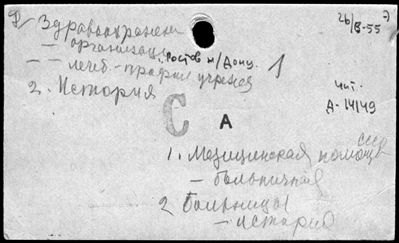 Здравоохранени
26/8-55
— организаци
Ростов н/Дону.
— — лечеб.-профил учрежд
1
2. История
Чит.
Д-14149
С А
1. Медицинская помощь
СССР
— больничная
2 Больницы
— история